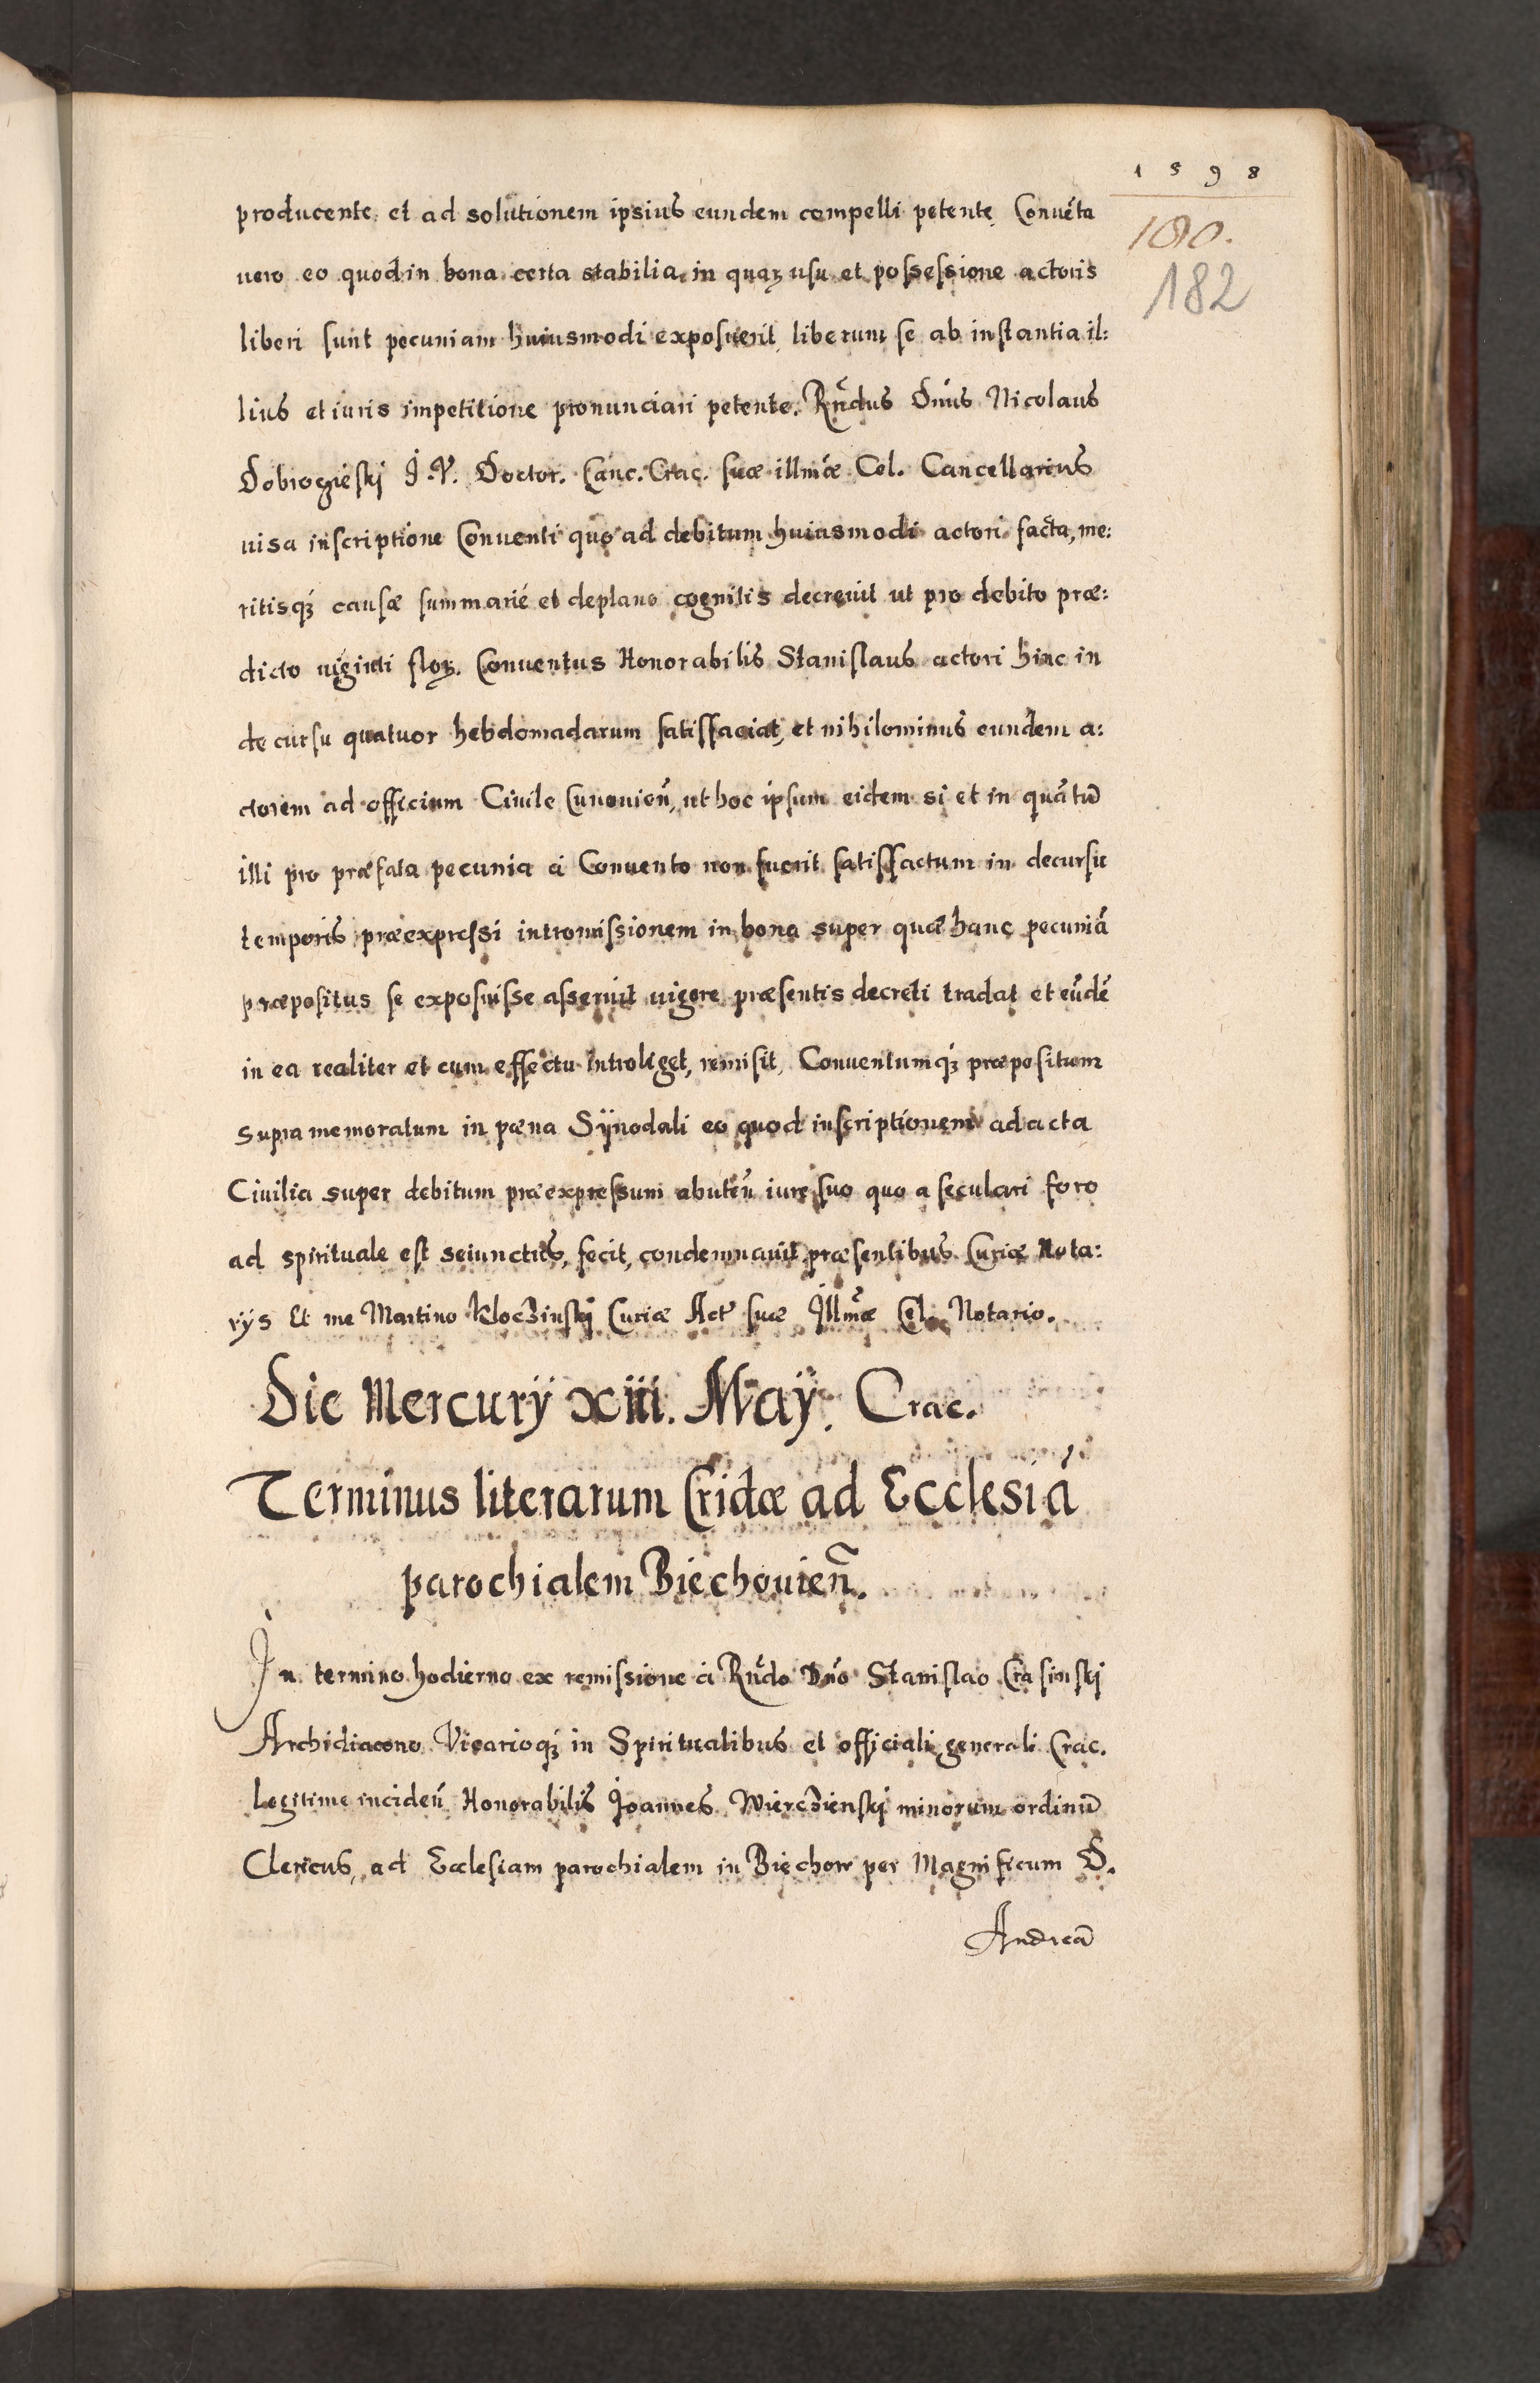 1598
180.
182
producente et ad solutionem ipsius eundem compelli petente, Conuẽta
uero eo quod in bona certa stabilia in quaꝝ usu et possessione actoris
liberi sunt pecuniam huiusmodi exposuerit, liberum se ab instantia il:
lius et iuris impetitione pronunciari petente. Rñdus Dñus Nicolaus
Dobrogieskj J. V. Doctor. Canc. Crac. suæ illmæ Cel. Cancellarius
uisa inscriptione Conuenti quo ad debitum huiusmodi actori facta, me:
ritisqꝫ causæ summariè et deplano cognitis decreuit ut pro debito præ:
dicto uiginti floꝝ. Conuentus Honorabilis Stanislaus actori hinc in
decursu quatuor hebdomadarum satisfaciat, et nihilominus eundem a:
ctorem ad officium Ciuile Cunouieñ, ut hoc ipsum eidem si et in quãtũ
illi pro præfata pecunia à Conuento non fuerit satisfactum in decursu
temporis præexpressi intromissionem in bona super quæ hanc pecuniã
præpositus se exposuisse asseruit uigore præsentis decreti tradat et eũdẽ
in ea realiter et cum effectu introliget, remisit, Conuentumqꝫ præpositum
supra memoratum in pæna Sÿnodali eo quod inscriptionem ad acta
Ciuilia super debitum præexpressum abuteñ iure suo quo a seculari foro
ad spirituale est seiunctus, fecit, condemnauit præsentibus Curiæ Nota:
rijs Et me Martino Kloczinskj Curiæ Act suæ Jllmæ Cel. Notario.
Die Mercurÿ xiii. Maÿ. Crac.
Terminus literarum Cridæ ad Ecclesiã
parochialem Biechouieñ.
Jn termino hodierno ex remissione à Rñdo Dño Stanislao Crasinskj
Archidiacono Vicarioqꝫ in Spiritualibus et officiali generali Crac.
Legitime incideñ Honorabilis Joannes Wierczienskj minorum ordinũ
Clericus, ad Ecclesiam parochialem in Biechow per Magnificum D.
Andreã